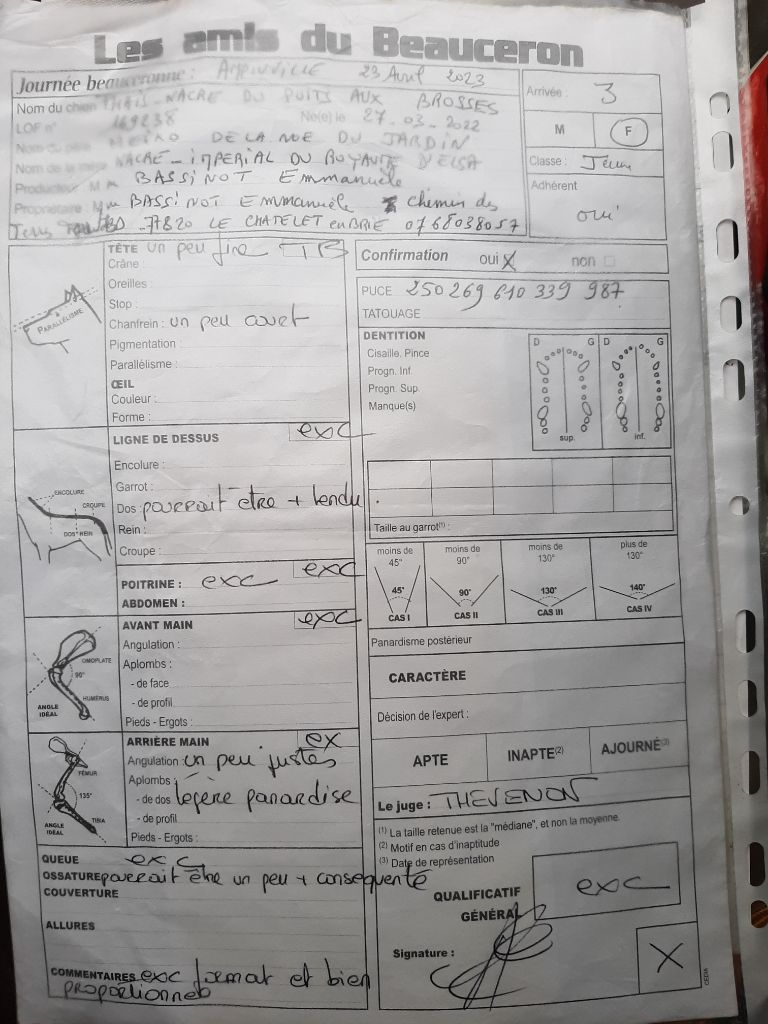 Les amis du Beauceron
Journée beauceronne : AMPINVILLE 23 Avril 2023
Nom du chien THAIS-NACRE DU PUITS AUX BROSSES
LOF n° 169238 Né(e) le : 27-03-2022
Nom du père DE LA NOE DU JARDIN
Nom de la mère NACRE-IMPERIAL DU ROYAUME D'ELSA
Producteur : M BASSINOT Emmanuèle
Propriétaire : Mme BASSINOT Emmanuèle chemin des
77820 LE CHATELET en BRIE 0768038057
Arrivée : 3
M F
Classe : Jeune
Adhérent
oui
TÊTE un peu fine TB
Crâne :
Oreilles :
Stop :
Chanfrein : un peu court
Pigmentation :
Parallélisme :
ŒIL
Couleur :
Forme :
PARALLÉLISME
Confirmation oui X non
PUCE 250 269 610 339 987
TATOUAGE
DENTITION
Cisaille, Pince
Progn. Inf.
Progn. Sup.
Manque(s)
D G D G
sup. inf.
Taille au garrot(1) :
LIGNE DE DESSUS exc
Encolure :
Garrot :
Dos : pourrait être + tendu.
Rein :
Croupe :
ENCOLURE
CROUPE
DOS REIN
POITRINE : exc exc
ABDOMEN :
moins de 45° moins de 90° moins de 130° plus de 130°
45° 90° 130° 140°
CAS I CAS II CAS III CAS IV
Panardisme postérieur
AVANT MAIN exc
Angulation :
Aplombs :
- de face
- de profil
Pieds - Ergots :
OMOPLATE
90°
HUMÉRUS
ANGLE IDÉAL
CARACTÈRE
Décision de l'expert :
APTE INAPTE(2) AJOURNÉ(3)
ARRIÈRE MAIN ex
Angulation un peu justes
Aplombs :
- de dos légère panardise
- de profil
Pieds - Ergots :
FÉMUR
135°
TIBIA
ANGLE IDÉAL
Le juge : THEVENON
(1) La taille retenue est la "médiane", et non la moyenne.
(2) Motif en cas d'inaptitude
(3) Date de représentation
QUEUE exc
OSSATURE pourrait être un peu + conséquente
COUVERTURE
ALLURES
COMMENTAIRES exc format et bien
proportionnée
QUALIFICATIF GÉNÉRAL exc
Signature :
X
CEDIA